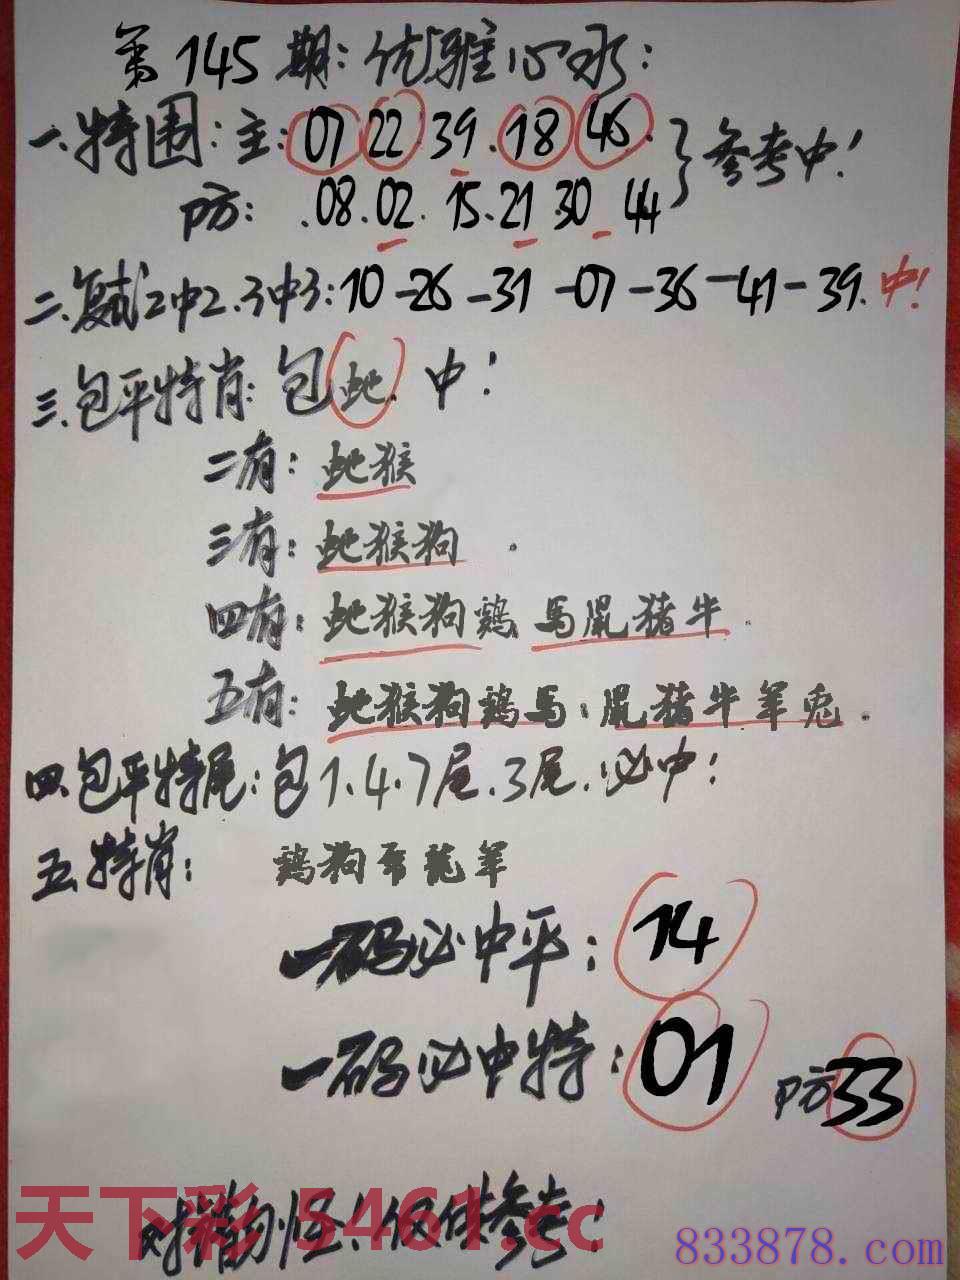 第145期:优雅心水:
一.特围:主:07 22 39.18 46.}参考中!
防:.08.02.15.21 30 44
二.复式2中2.3中3:10-26-31-07-36-41-39.中!
三.包平特肖:包蛇.中!
二有:蛇猴
三有:蛇猴狗.
四有:蛇猴狗鷄 馬鼠猪牛.
五有:蛇猴狗鷄馬:鼠猪牛羊兎.
四.包平特尾:包1.4.7尾.3尾.必中!
五.特肖: 鷄狗 龍羊
一码必中平:14
一码必中特:01 防33
对错勿怪!仅供参考!
天下彩 5461.cc
833878.com